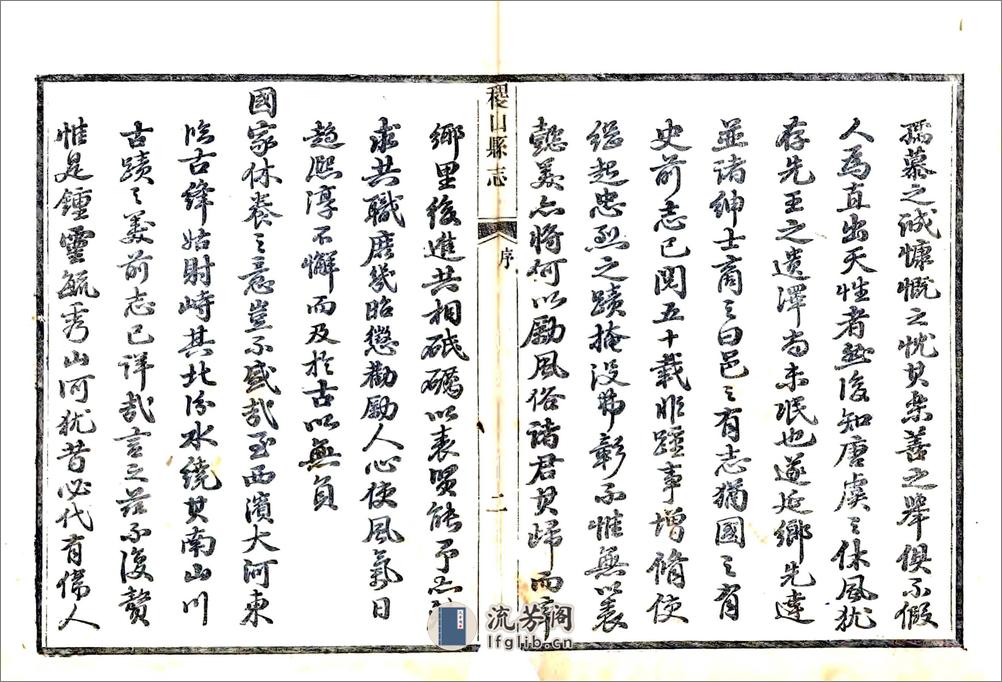 孺慕之誠慷慨之忱其樂善之舉俱不假
人為直出天性者然後知唐虞之休風猶
存先王之遺澤尚未泯也遂延鄉先達
並諸紳士商之曰邑之有志猶國之有
史前志已閱五十載非踵事增脩使
繼起忠烈之蹟掩沒弗彰不惟無以表
懿美亦將何以勵風俗諸君其歸而
稷山縣志
序
二
鄉里後進共相砥礪以表賢能予亦
求共職庶幾昭懲勸勵人心使風氣日
趨熙淳不懈而及於古以無負
國家休養之意豈不盛哉至西濱大河東
臨古絳姑射峙其北汾水繞其南山川
古蹟之美前志已詳哉言之茲不復贅
惟是鍾靈毓秀山河猶昔必代有偉人
流芳阁
lfglib.cn